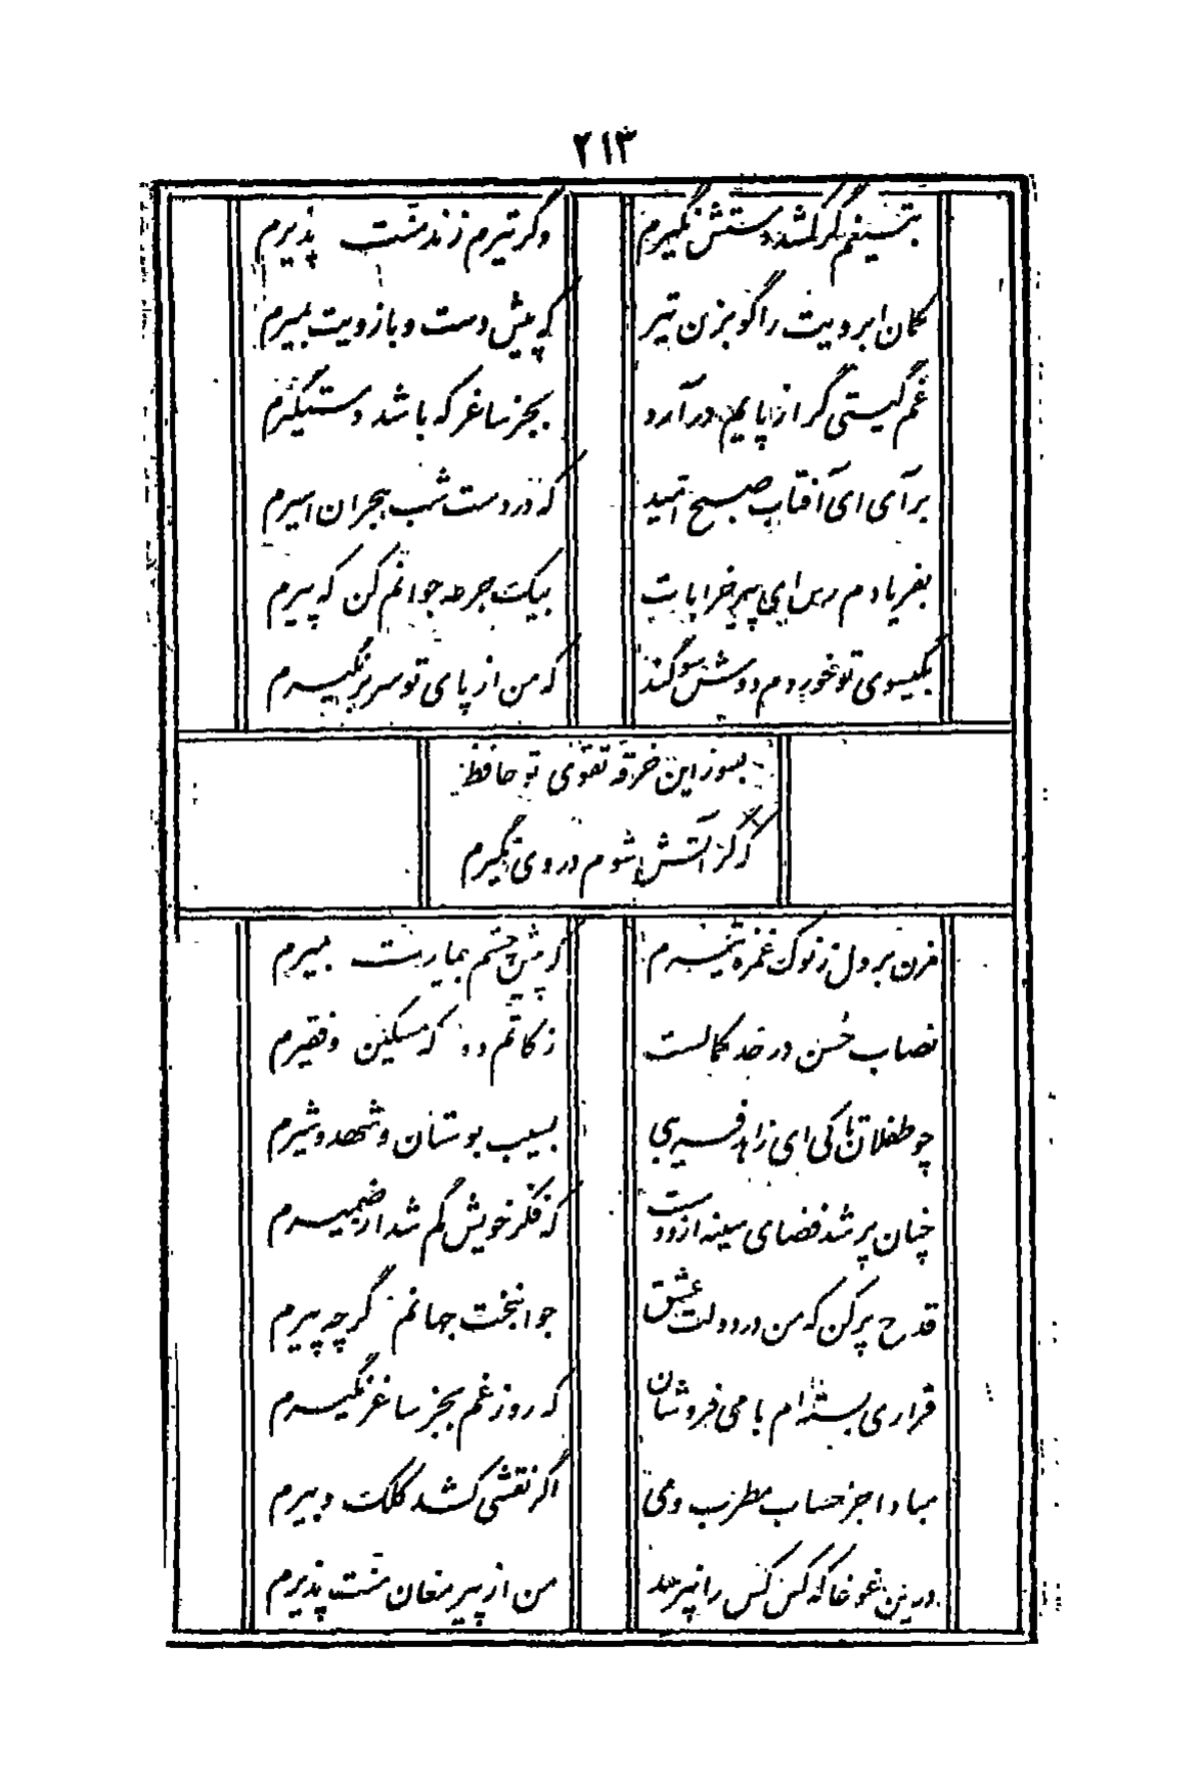 ۲۱۳
بتیغم گر کشد دستش نگیرم وگر تیرم زند منت پذیرم
کمان ابرویت را گو بزن تیر که پیش دست و بازویت بمیرم
غم گیتی گر از پایم درآرد بجز ساغر که باشد دستگیرم
برآی ای آفتاب صبح امید که در دست شب هجران اسیرم
بفریادم رس ای پیر خرابات بیک جرعه جوانم کن که پیرم
بگیسوی تو خوردم دوش سوگند که من از پای تو سر برنگیرم
بسوز این خرقه تقوی تو حافظ
که گر آتش شوم در وی نگیرم
مزن بر دل ز نوک غمزه تیرم که پیش چشم بیمارت بمیرم
نصاب حُسن در حد کمالست زکاتم ده که مسکین و فقیرم
چو طفلان تا کی ای زاهد فریبی بسیب بوستان و شهد و شیرم
چنان پر شد فضای سینه از دوست که فکر خویش گم شد از ضمیرم
قدح پر کن که من در دولت عشق جوانبخت جهانم گرچه پیرم
قراری بسته‌ام با می فروشان که روز غم بجز ساغر نگیرم
مبادا جز حساب مطرب و می اگر نقشی کشد کلک دبیرم
درین غوغا که کس کس را نپرسد من از پیر مغان منت پذیرم